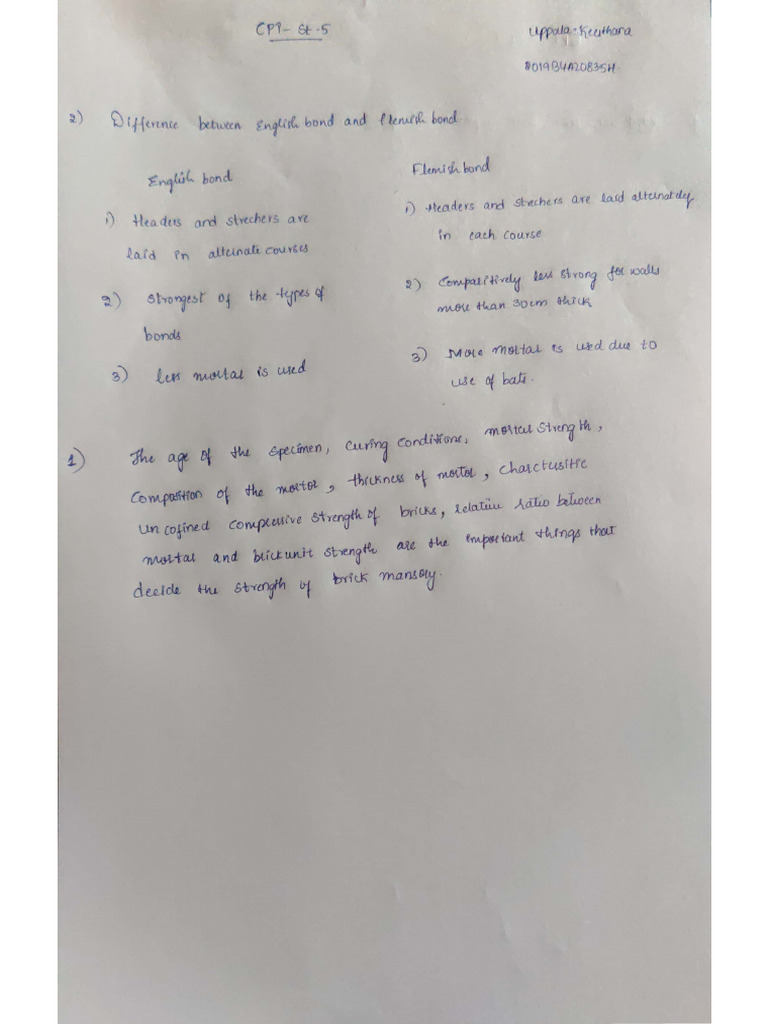 CPI- St-5
Uppala-Keerthana
2019B4A20835H
2) Difference between English bond and flemish bond
English bond
1) Headers and strechers are
laid in alternate courses
2) strongest of the types of
bonds
3) less mortar is used
Flemish bond
1) Headers and strechers are laid alternately
in each course
2) Comparitively less strong for walls
more than 30cm thick
3) More mortar is used due to
use of bats.
1) The age of the specimen, curing conditions, mortar strength,
composition of the mortor, thickness of mortor, charctusitic
un cofined compressive strength of bricks, relative ratio between
mortar and brick unit strength are the important things that
decide the strength of brick mansory.